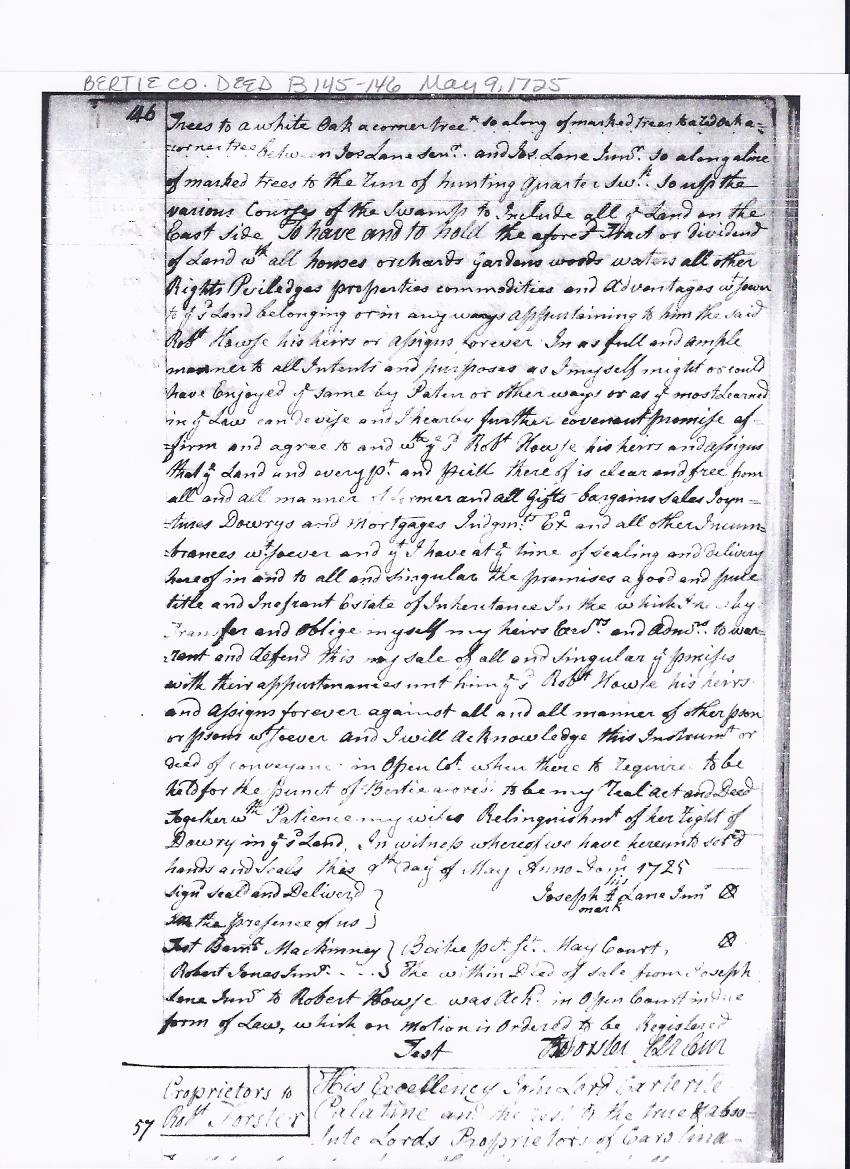 BERTIE CO. DEED B 145-146 May 9, 1725
146
Trees to a white Oak a corner tree so along of marked trees to a red oak a=
=corner tree between Jos Lane Senr. and Jos Lane Junr. so along a line
of marked trees to the Run of hunting Quarter Swp. so upp the
various Courses of the Swamp to Include all ye Land on the
East Side To have and to hold the aforesd Tract or dividend
of Land wth all houses orchards gardens woods waters all other
Rights Priviledges properties commodities and Advantages wtsoever
to ye sd Land belonging or in any ways appurtaining to him the said
Robt Howse his heirs or assigns forever In as full and ample
manner to all Intents and purposes as I myself might or could
have Enjoyed ye same by Paten or other ways or as ye most Learned
in ye Law can devise and I hearby further covenant promise af-
=firm and agree to and wth ye sd Robt Howse his heirs and assigns
that ye Land and every pt. and psill there of is clear and free from
all and all manner of former and all Gifts bargains sales Joyn=
=tures Dowrys and Mortgages Judgmts Ex and all other Incum=
=brances wtsoever and yt I have at ye time of sealing and delivery
hereof in and to all and singular the premises a good and pure
title and Estate of Inheritance In the which I
Transfer and oblige myself my heirs Exrs. and Admrs. to war=
=rant and defend this my sale of all and singular ye pmises
with their appurtenances unt him ye sd Robt Howse his heirs
and assigns forever against all and all manner of other pson
or psons wtsoever and I will Acknowledge this Instrumt or
deed of conveyanc in Open Ct. when there to require to be
held for the of Bertie aforesd to be my real act and Deed
Together wth Patience my wifes Relinquishmt of her right of
Dowry in ye sd Land. In witness whereof we have hereunto set
hands and seals this 9th day of May Anno Dom 1725
sign seald and Deliverd } his
Joseph Lane Junr
in the presence of us } mark
Test Benj. Mackinney } Bertie pct Sc. May Court,
Robert Jones Junr. - - - } The within Deed of sale from Joseph
Lane Junr to Robert Howse was Ackd. in Open Court in due
form of Law, which on motion is Ordered to be Registered
Test Forster
Proprietors to
Robt Forster
57
His Excellency John Lord Carterite
Palatine and the rest of the true & abso=
lute Lords Proprietors of Carolina